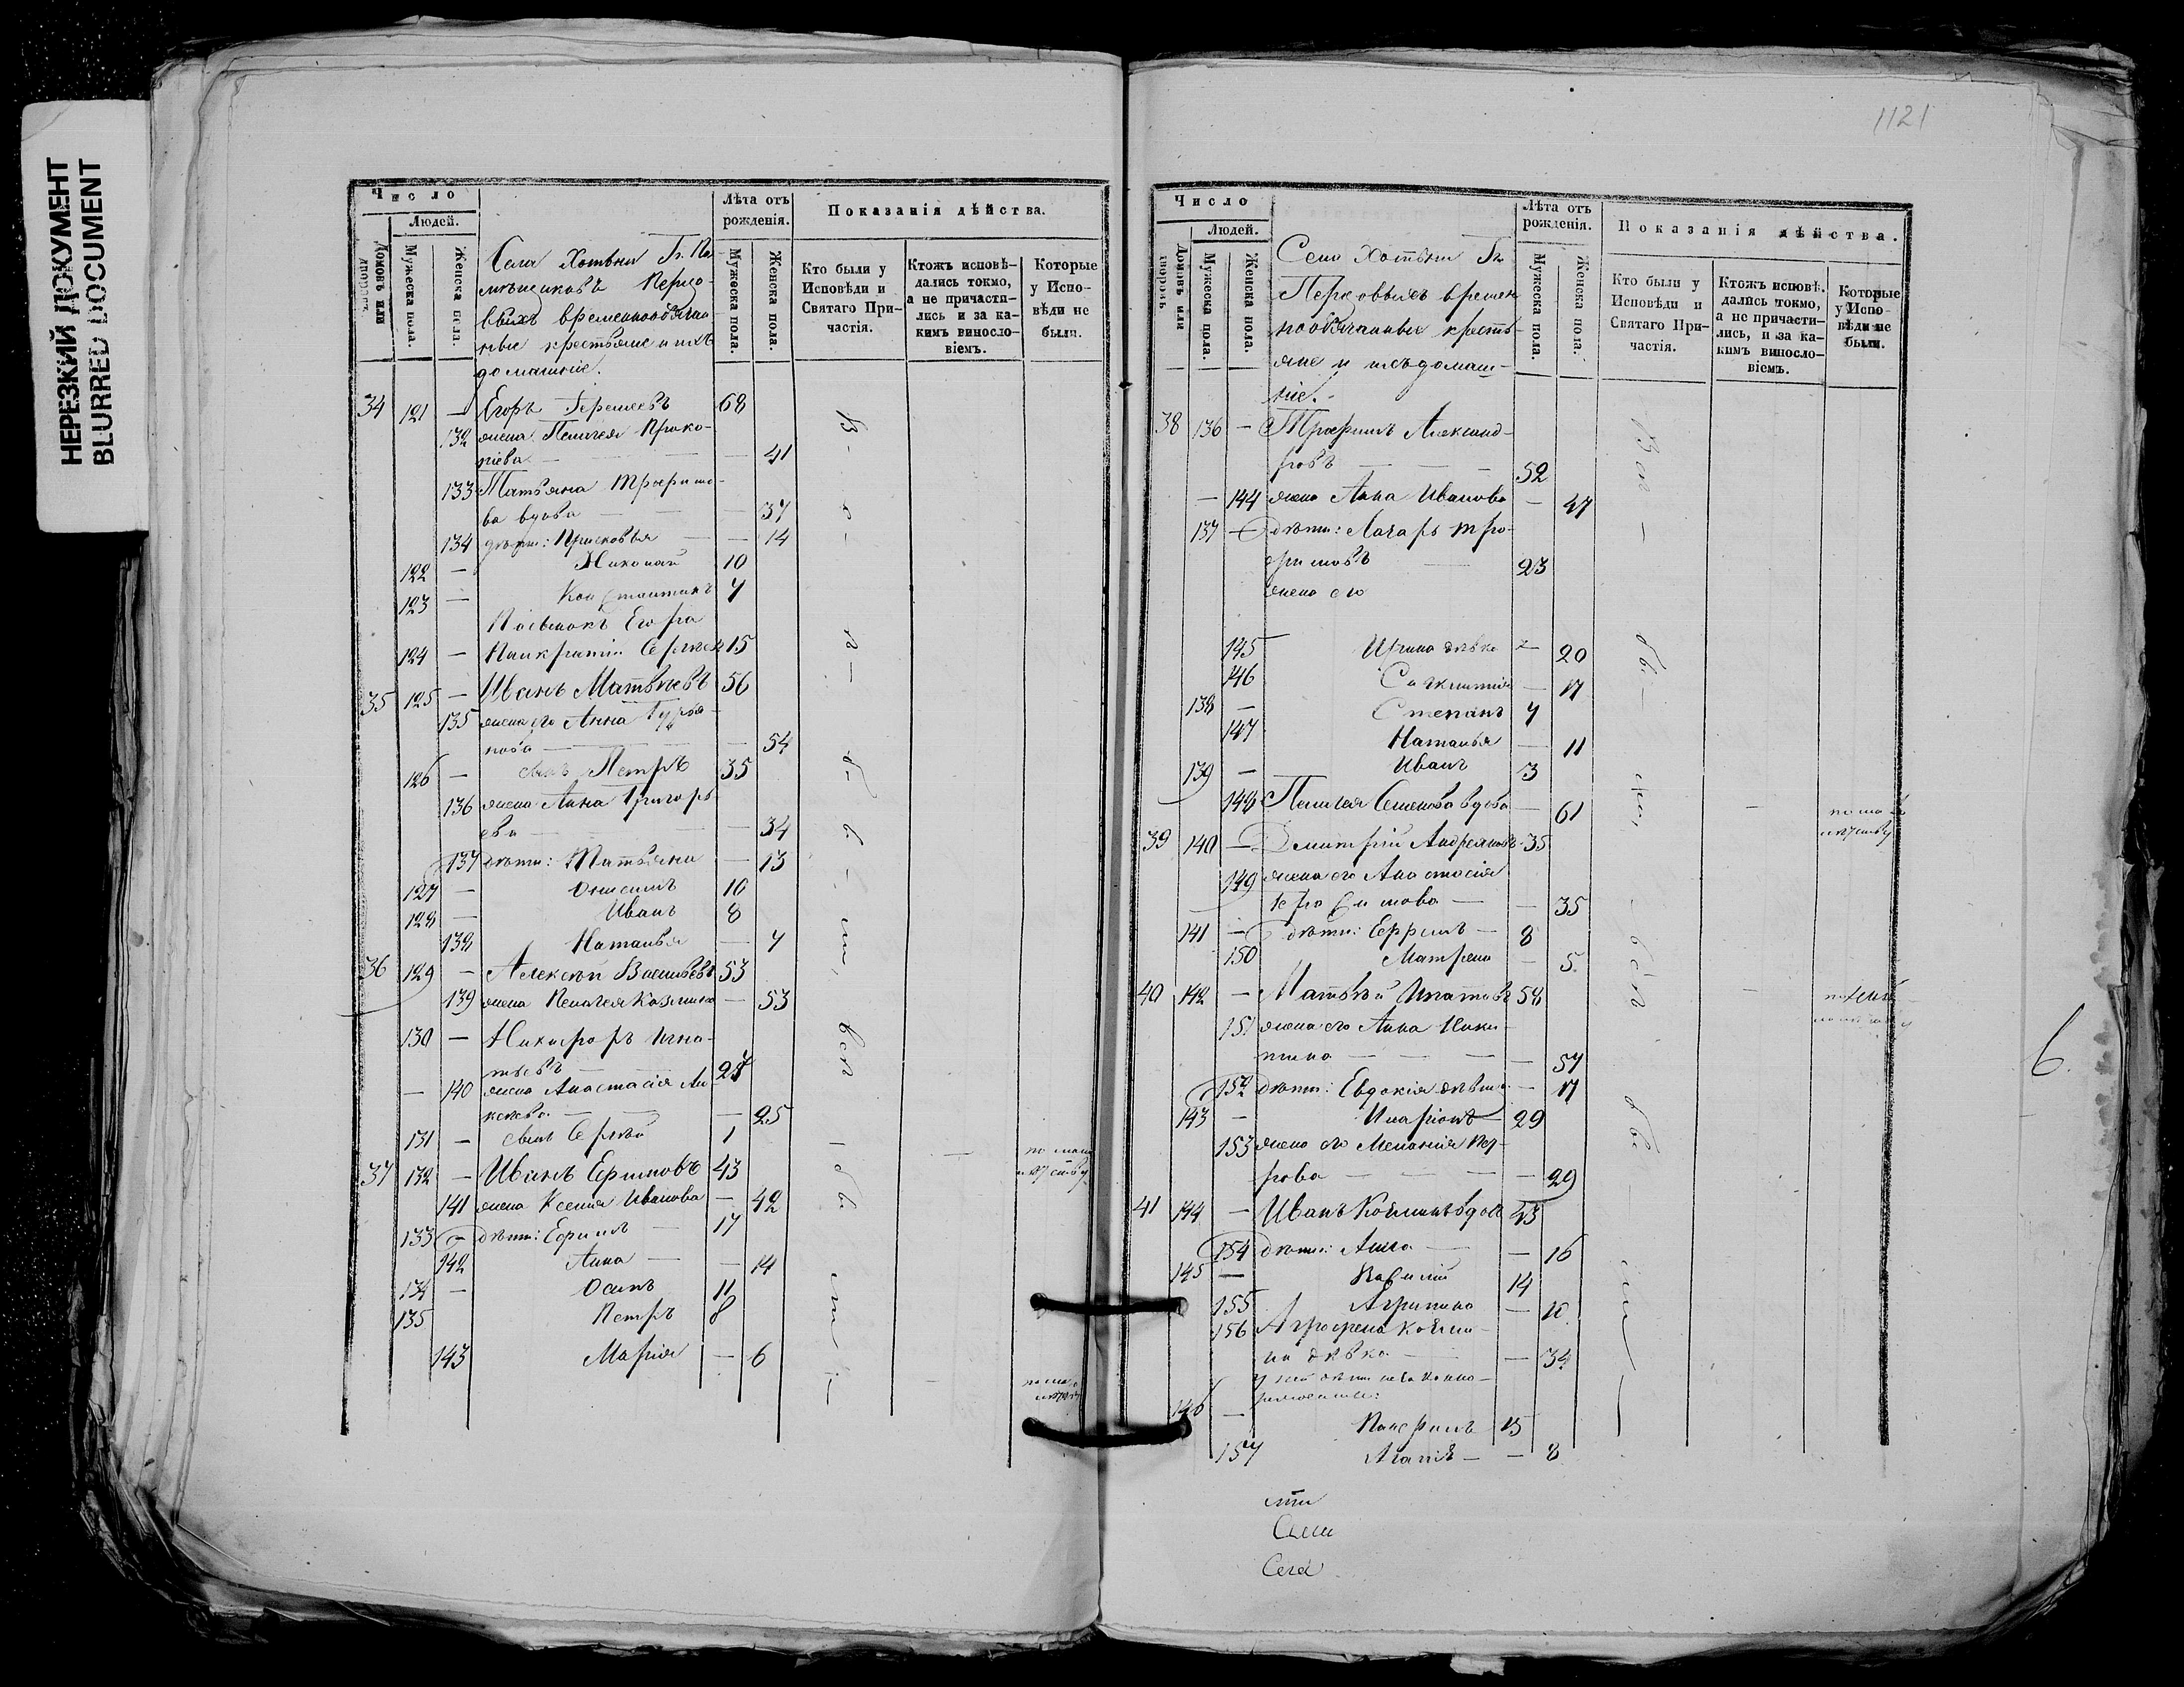 НЕРЕЗКИЙ ДОКУМЕНТ
BLURRED DOCUMENT
Число
Людей.
домовъ или дворовъ
Мужеска пола.
Женска пола.
Лѣта отъ рожденія.
Мужеска пола.
Женска пола.
Показанія дѣйства.
Кто были у Исповѣди и Святаго Причастія.
Ктожъ исповѣдались токмо, а не причастились и за какимъ винословіемъ.
Которые у Исповѣди не были.
Села Хотѣни Гг. По-
мѣщиковъ Перхо-
выхъ временнообязан-
ные крестьяне и ихъ
домашніе.
34 121 — Егоръ 68
132 жена Пелагея Проко-
піева — — 41
133 Татьяна Трофимо-
ва вдова — — 37
134 дѣти: Прасковья — — 14
122 — Николай 10
123 — Константинъ 7
Егора
124 — Панкратій Сергѣевъ 15
35 125 — Иванъ Матвѣевъ 56
135 жена его Анна
нова — — 54
126 — сынъ Петръ 35
136 жена Анна Григорь-
ева — — 34
137 дѣти: Татьяна — 13
127 — Онисимъ 10
128 — Иванъ 8
138 Наталья — 7
36 129 — Алексѣй Васильевъ 53
139 жена Пелагея Козмина — 53
130 — Никифоръ Игна-
тьевъ 27
— 140 жена Анастасія Але-
ксѣева — — 25
131 — сынъ Сергѣй 1
37 132 — Иванъ Ефимовъ 43
141 жена Ксенія Иванова — 42
133 — дѣти: Ефимъ — 17
142 Анна — — 14
134 — Осипъ 11
135 Петръ 8
143 Марія — 6
1121
Число
Людей.
Домовъ или дворовъ
Мужеска пола.
Женска пола.
Лѣта отъ рожденія.
Мужеска пола.
Женска пола.
Показанія дѣйства.
Кто были у Исповѣди и Святаго Причастія.
Ктожъ исповѣдались токмо, а не причастились, и за какимъ винословіемъ.
Которые у Исповѣди не были.
Села Хотѣни Гг.
Перховыхъ времен-
нообязанные кресть-
яне и ихъ домаш-
ніе.
38 136 — Трофимъ Александ-
ровъ — — 52
— 144 жена Анна Иванова — 47
137 — дѣти: Лазарь Тро-
фимовъ — 23
жена его
145 Ирина дѣвка — 20
146 — 17
138 — Степанъ 7
147 Наталья — 11
139 — Иванъ 3
148 Пелагея Семенова вдова — 61
39 140 — Димитрій Андреяновъ 35
149 жена его Анастасія
Герасимова — — 35
141 — дѣти: Ефремъ — 8
150 Матрена — 5
40 142 — Матвѣй Игнатовъ 58
151 жена его Анна Ники-
тина — — — 57
152 дѣти: Евдокія дѣвица — 17
143 — Иларіонъ — 29
153 жена его Меланія Пет-
рова — — 29
41 144 — Иванъ Козминъ вдов 43
154 дѣти: Анна — — 16
145 — Василій 14
155 Агрипина — 10
156 Агрофена Козми-
на дѣвка — — 34
у ней дѣти незаконно-
рожденные:
146 — Панфилъ 15
157 Агапія — — 8
сти
Села
6